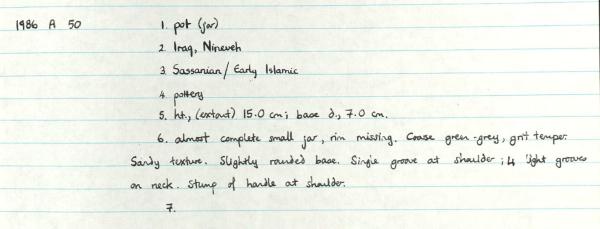 1986 A 50
1. pot (jar)
2. Iraq, Nineveh
3. Sassanian / Early Islamic
4. pottery
5. ht., (extant) 15.0 cm; base d., 7.0 cm.
6. almost complete small jar, rim missing. Coarse green-grey, grit temper.
Sandy texture. Slightly rounded base. Single groove at shoulder; 4 light grooves
on neck. Stump of handle at shoulder.
7.